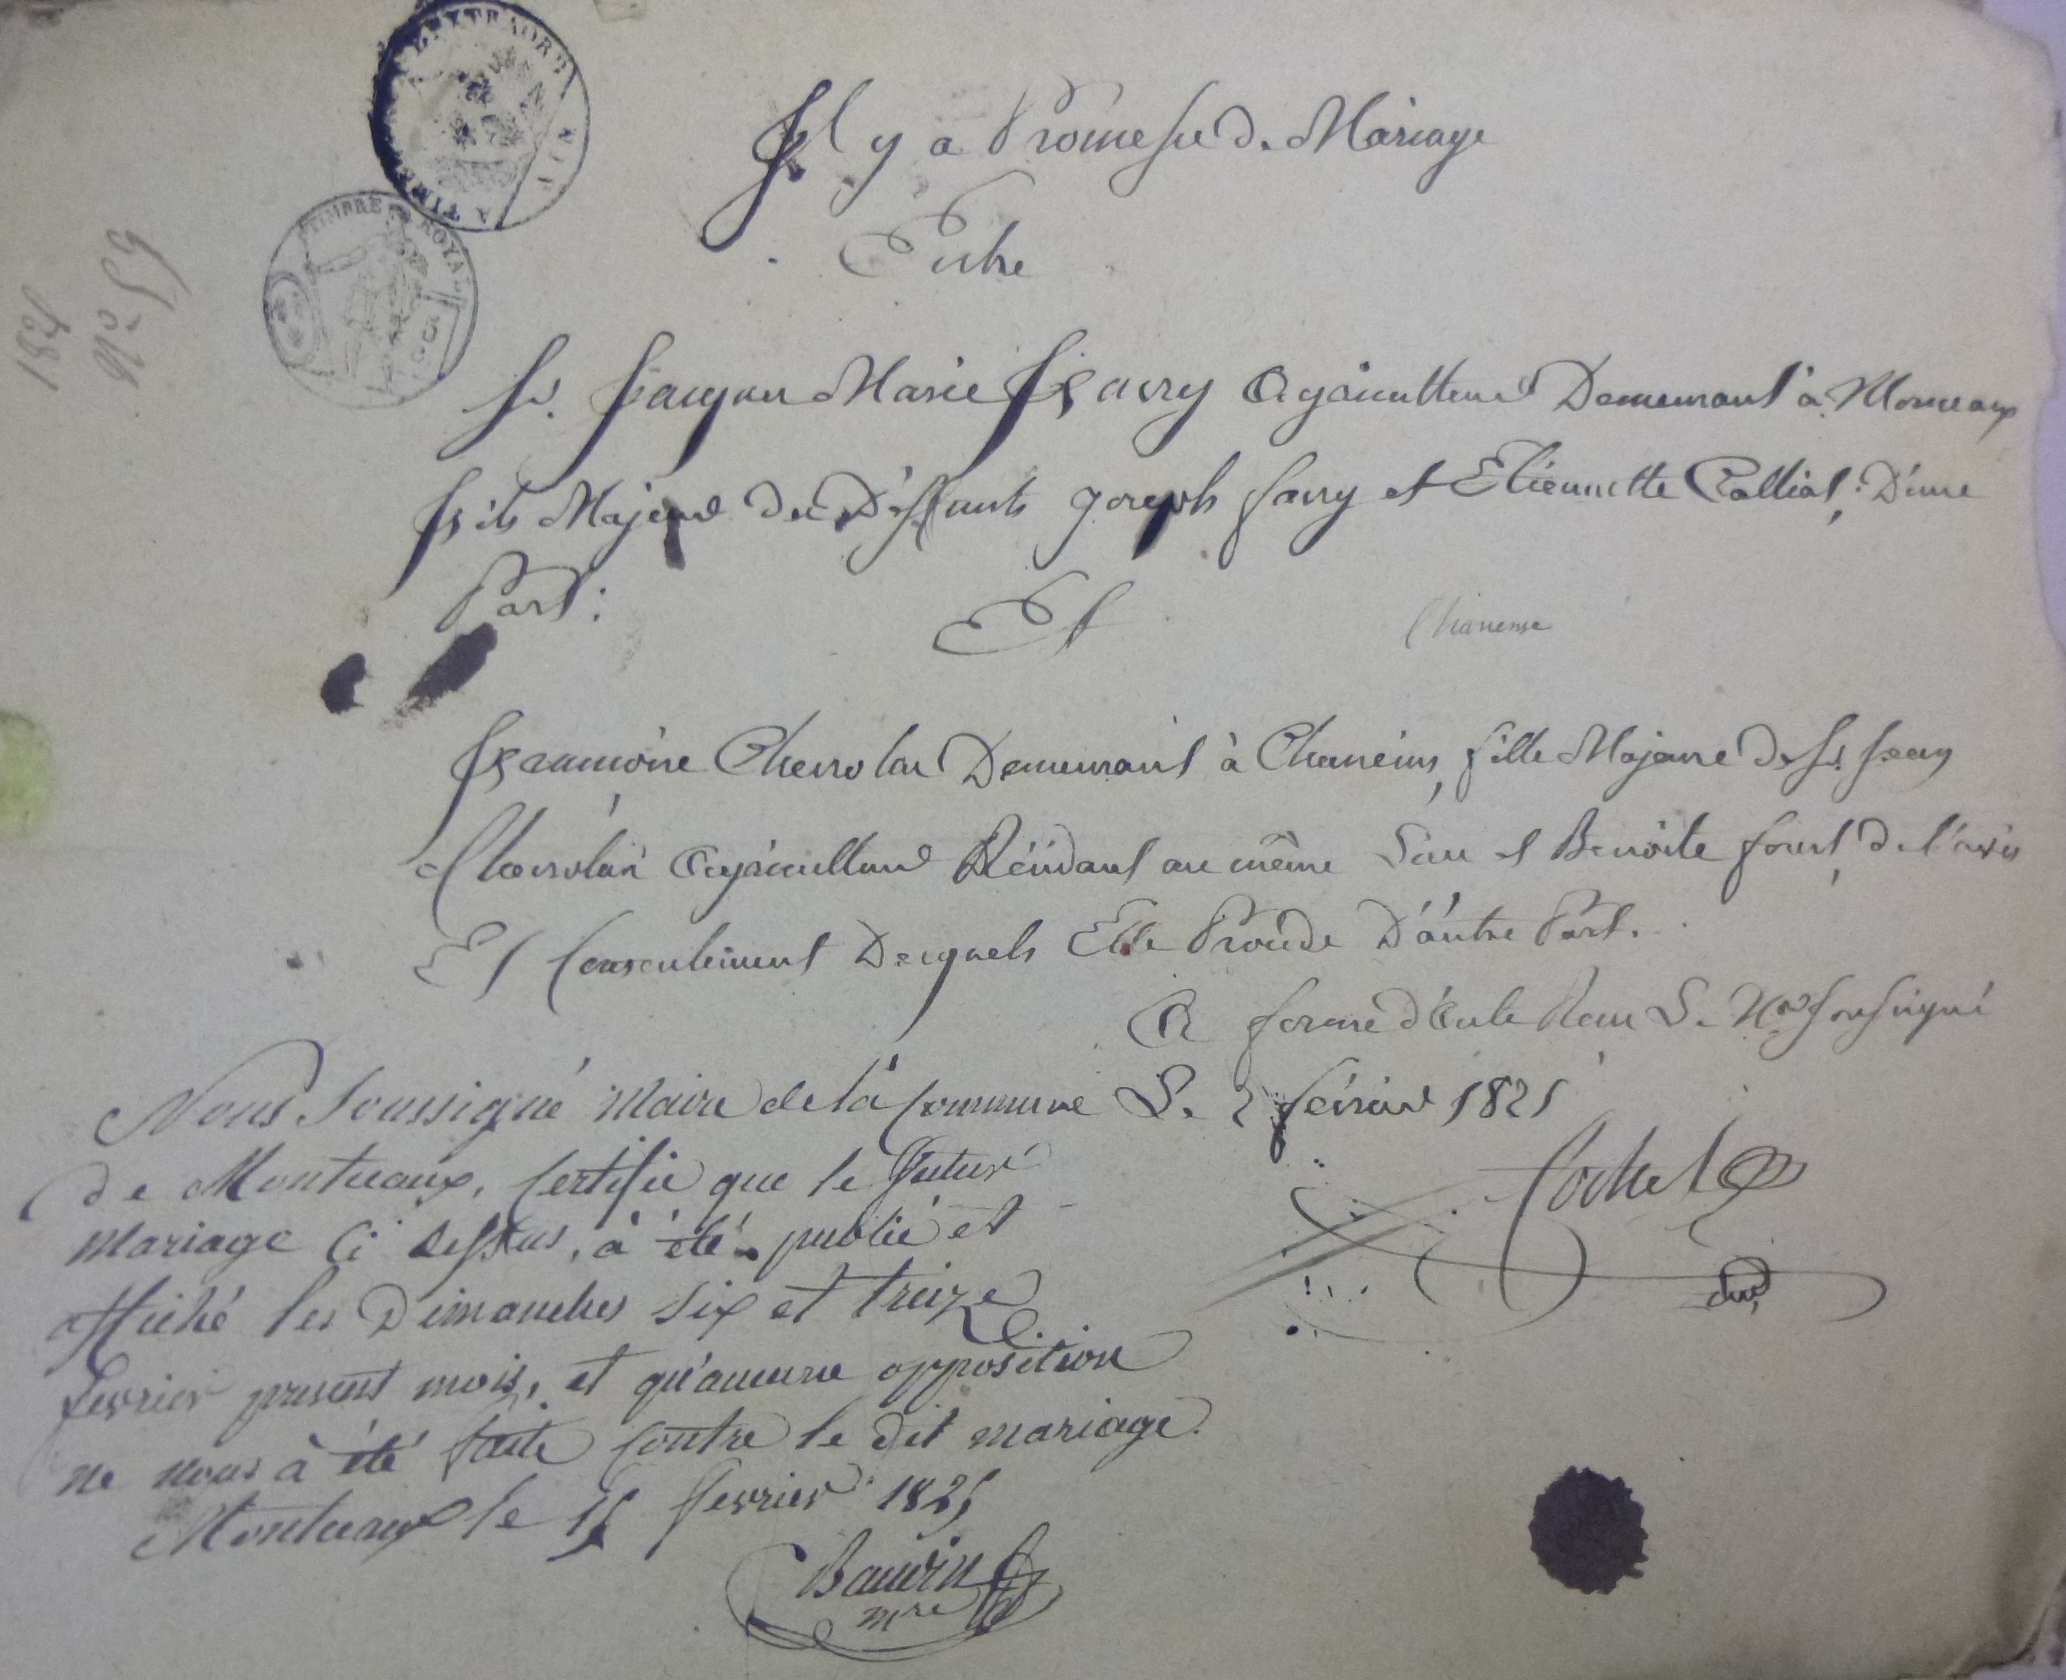 A TIMBRE EXTRAORDRE
AIN
TIMBRE ROYAL
Il y a Promesse de Mariage
Entre
Sr. Jacques Marie Favry Agriculteur Demeurant à Monceaux
fils Majeur des Deffunts Joseph favry et Etiennette Calliat, D'une
Part:
Et
Chaneins
francoise Chervolin Demeurant à Chaneins, fille Majeure de Sr. Jean
Chervolin Agriculteur Résidant au même Lieu et Benoite font, de l'avis
Et Consentement Desquels Elle Procéde D'autre Part.
forme Le Nre soussigné
Le 2 février 1825
Cochet
Nous Soussigné Maire de la Commune
de Montceaux, Certifie que le futur
mariage Ci dessus, à été publié et
affiché les Dimanches six et treize
fevrier present mois, et qu'aucune opposition
ne nous à été faite Contre le dit mariage.
Montceaux le 15 fevrier 1825
Bauvin
mre